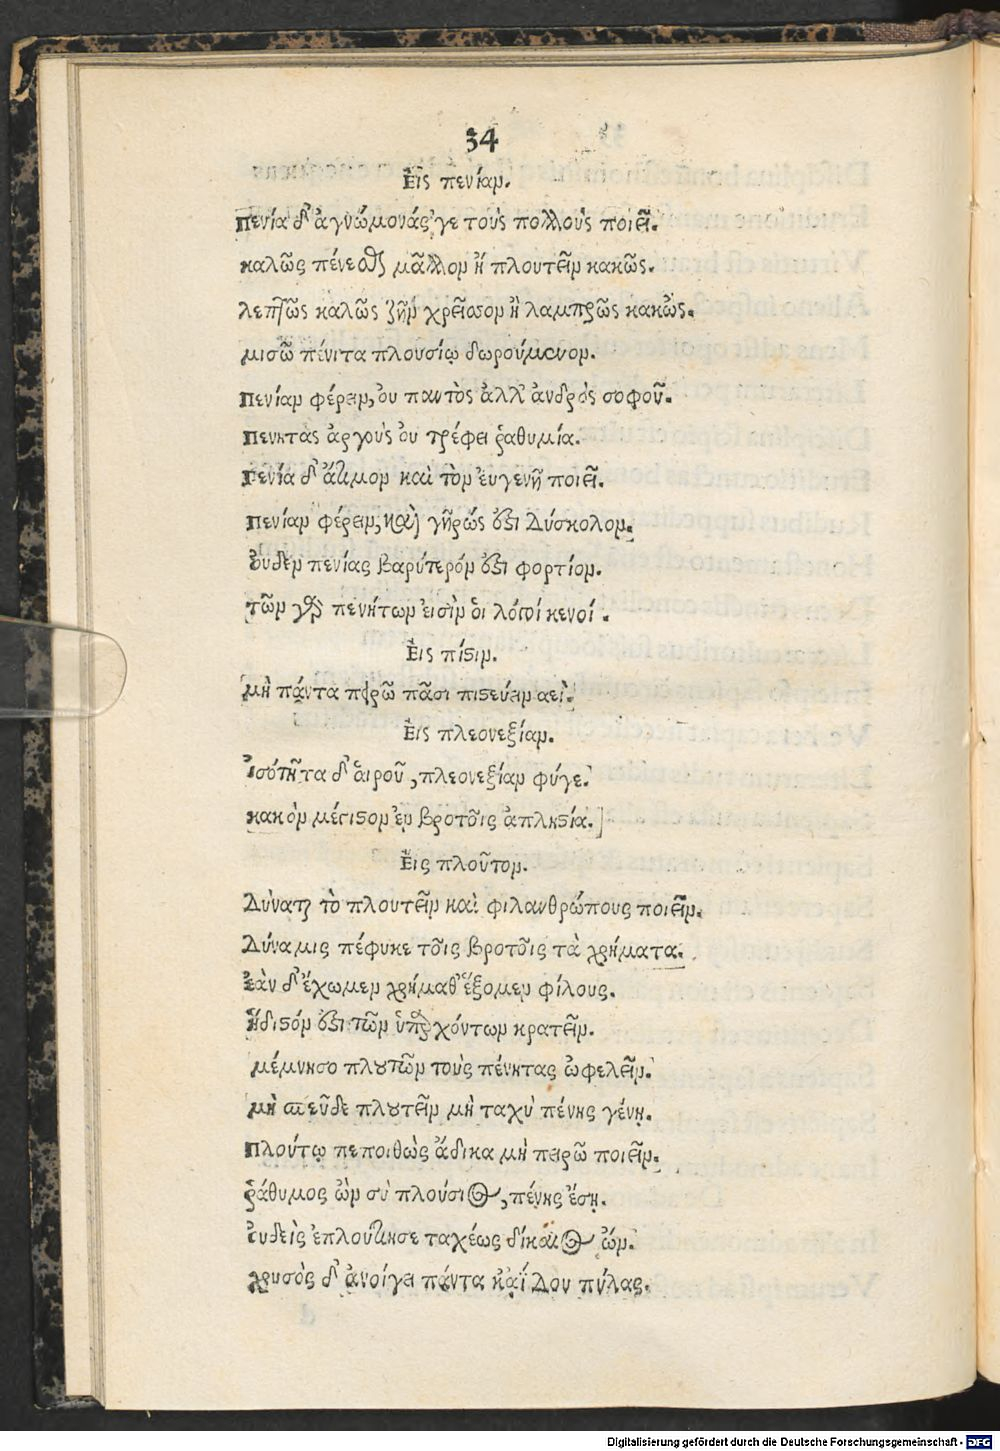 34
Εἰς πενίαν.
Πενία δ' ἀγνώμονάς γε τοὺς πολλοὺς ποιεῖ.
καλῶς πένεσθαι μᾶλλον ἢ πλουτεῖν κακῶς.
λεπτῶς καλῶς ζῆν χρεῖσσον ἢ λαμπρῶς κακὼς.
μισῶ πένιτα πλουσίῳ δωρούμενον.
Πενίαν φέρειν, ου παντὸς ἀλλ' ἀνδρὸς σοφοῦ.
Πενητὰς ἀργοὺς ὀυ τρέφει ῥαθυμία.
Γενία δ' ἄτιμον καὶ τὸν ἐυγενῆ ποιεῖ.
Πενίαν φέρειν, καὶ γῆρώς ἐστι Δύσκολον.
ὀυδεν πενίας βαρύτερόν ἐστι φορτίον.
τῶν γὰρ πενήτων ἐισὶν ὁι λόγοι κενοί.
Εἰς πίστιν.
μὴ πάντα πειρῶ πᾶσι πιστεύειν αεὶ.
Εἰς πλεονεξίαν.
Ἰσότητα δ' ἁιροῦ, πλεονεξίαν φύγε.
κακὸν μέγιστον ἐν βροτοῖς ἀπληστία.
Εἰς πλοῦτον.
Δύναται τὸ πλουτεῖν καὶ φιλανθρώπους ποιεῖν.
Δύναμις πέφυκε τοῖς βροτοῖς τὰ χρήματα.
ἐὰν δ' ἔχωμεν χρήμαθ' ἕξομεν φίλους.
ἥδιστόν ἐστι τῶν ὑπαρχόντων κρατεῖν.
μέμνησο πλουτῶν τοὺς πένητας ὠφελεῖν.
μὴ σπεῦδε πλουτεῖν μὴ ταχὺ πένης γένῃ.
Πλούτῳ πεποιθὼς ἄδικα μὴ πειρῶ ποιεῖν.
ῥάθυμος ὢν σὺ πλούσιος, πένης ἔσῃ.
ὀυδεὶς ἐπλούτησε ταχέως δίκαιος ὤν.
χρυσὸς δ' ἀνοίγει πάντα κἀΐδου πύλας.
Digitalisierung gefördert durch die Deutsche Forschungsgemeinschaft - DFG